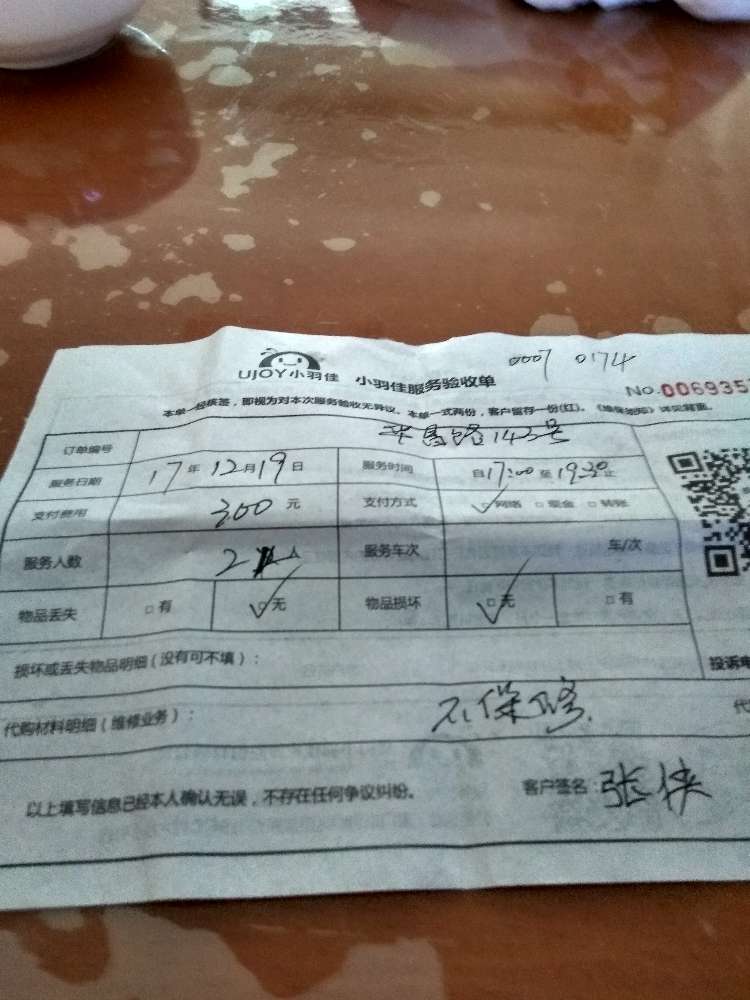 UJOY小羽佳 小羽佳服务验收单 0007 0174
No.006935
本单一经核签，即视为对本次服务验收无异议。本单一式两份，客户留存一份(红)。《维保细则》详见背面。
订单编号 华昌路143号
服务日期 17年12月19日 服务时间 自17:00至19:30止
支付费用 300元 支付方式 网络 现金 转账
服务人数 2人 服务车次 车/次
物品丢失 有 无 物品损坏 无 有
损坏或丢失物品明细（没有可不填）： 投诉电
代购材料明细（维修业务）： 不保修 代
以上填写信息已经本人确认无误，不存在任何争议纠纷。 客户签名：张侠